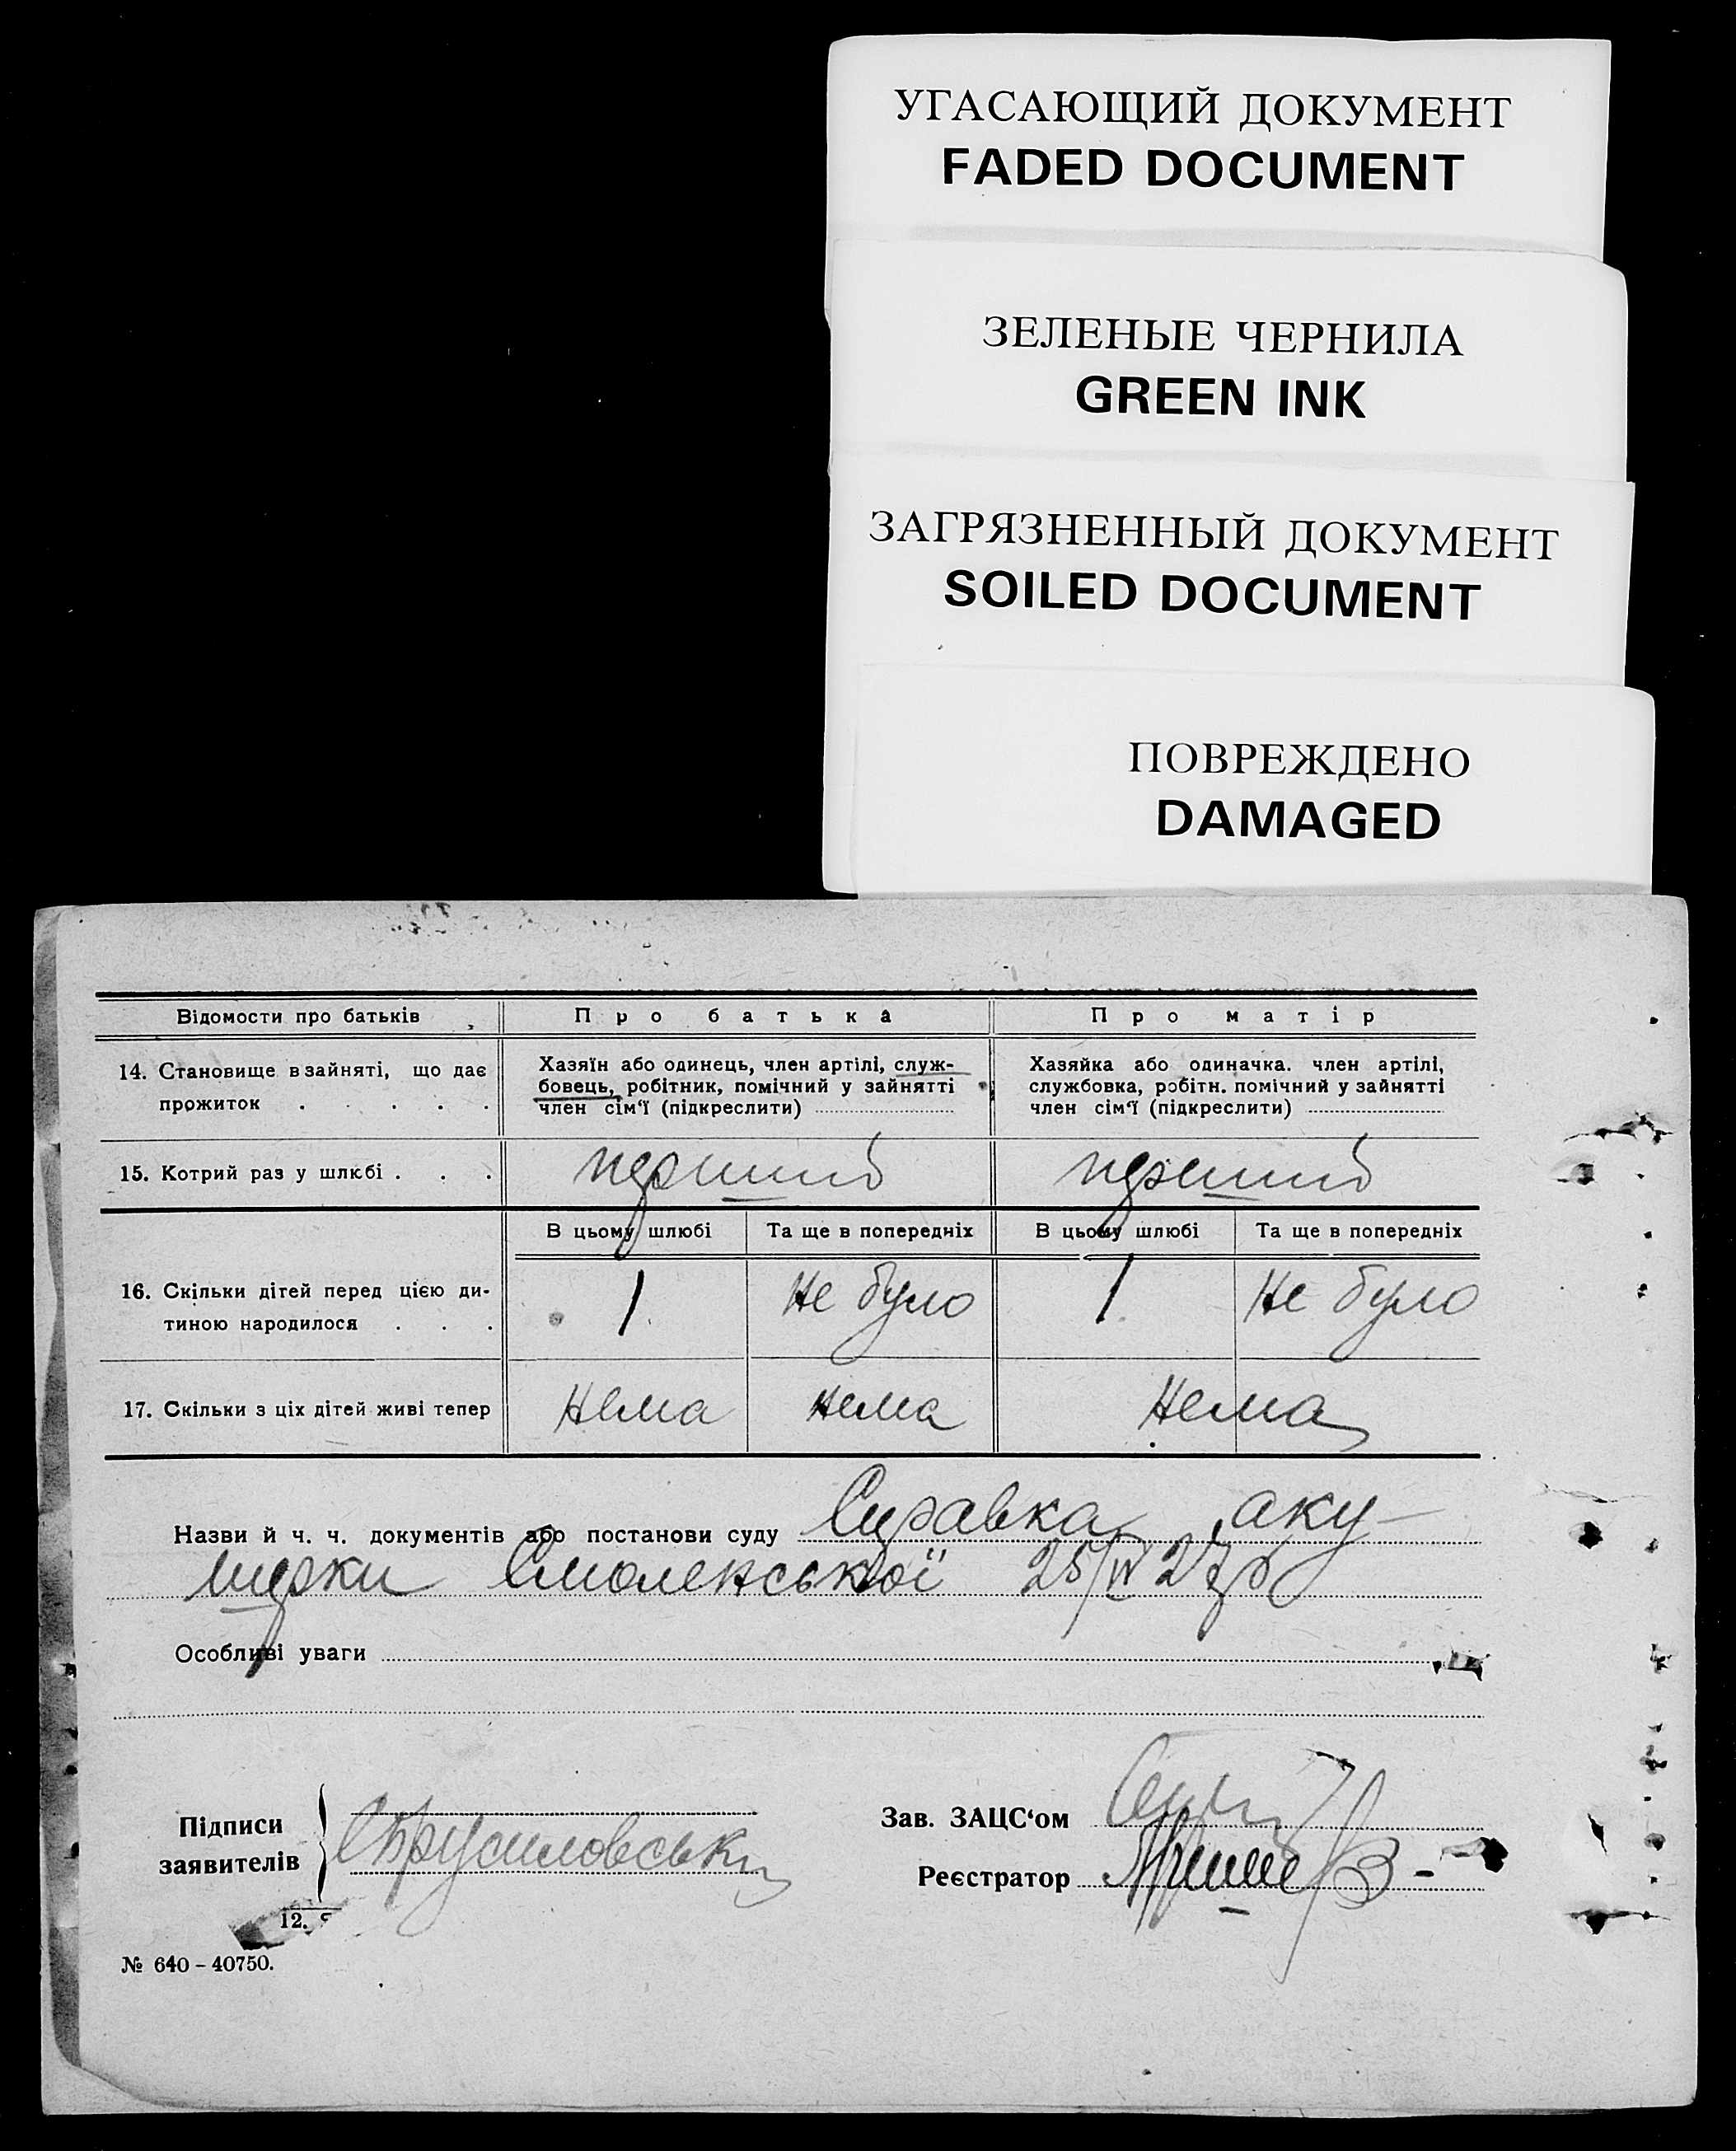 УГАСАЮЩИЙ ДОКУМЕНТ
FADED DOCUMENT
ЗЕЛЕНЫЕ ЧЕРНИЛА
GREEN INK
ЗАГРЯЗНЕННЫЙ ДОКУМЕНТ
SOILED DOCUMENT
ПОВРЕЖДЕНО
DAMAGED
Відомости про батьків
Про батька
Про матір
14. Становище в зайняті, що дає
прожиток . . . . .
Хазяїн або одинець, член артілі, служ-
бовець, робітник, помічний у зайнятті
член сім‘ї (підкреслити)
Хазяйка або одиначка. член артілі,
службовка, робітн. помічний у зайнятті
член сім‘ї (підкреслити)
15. Котрий раз у шлюбі . . .
перший
перший
В цьому шлюбі
Та ще в попередніх
В цьому шлюбі
Та ще в попередніх
16. Скільки дітей перед цією ди-
тиною народилося . . .
1
Не було
1
Не було
17. Скільки з ціх дітей живі тепер
Нема
Нема
Нема
Назви й ч. ч. документів або постанови суду Справка аку-
шерки Смоленської 25/IV 27р
Особливі уваги
Підписи
заявителів
Брусиловськ
Зав. ЗАЦС‘ом
Реєстратор
12.
№ 640 - 40750.